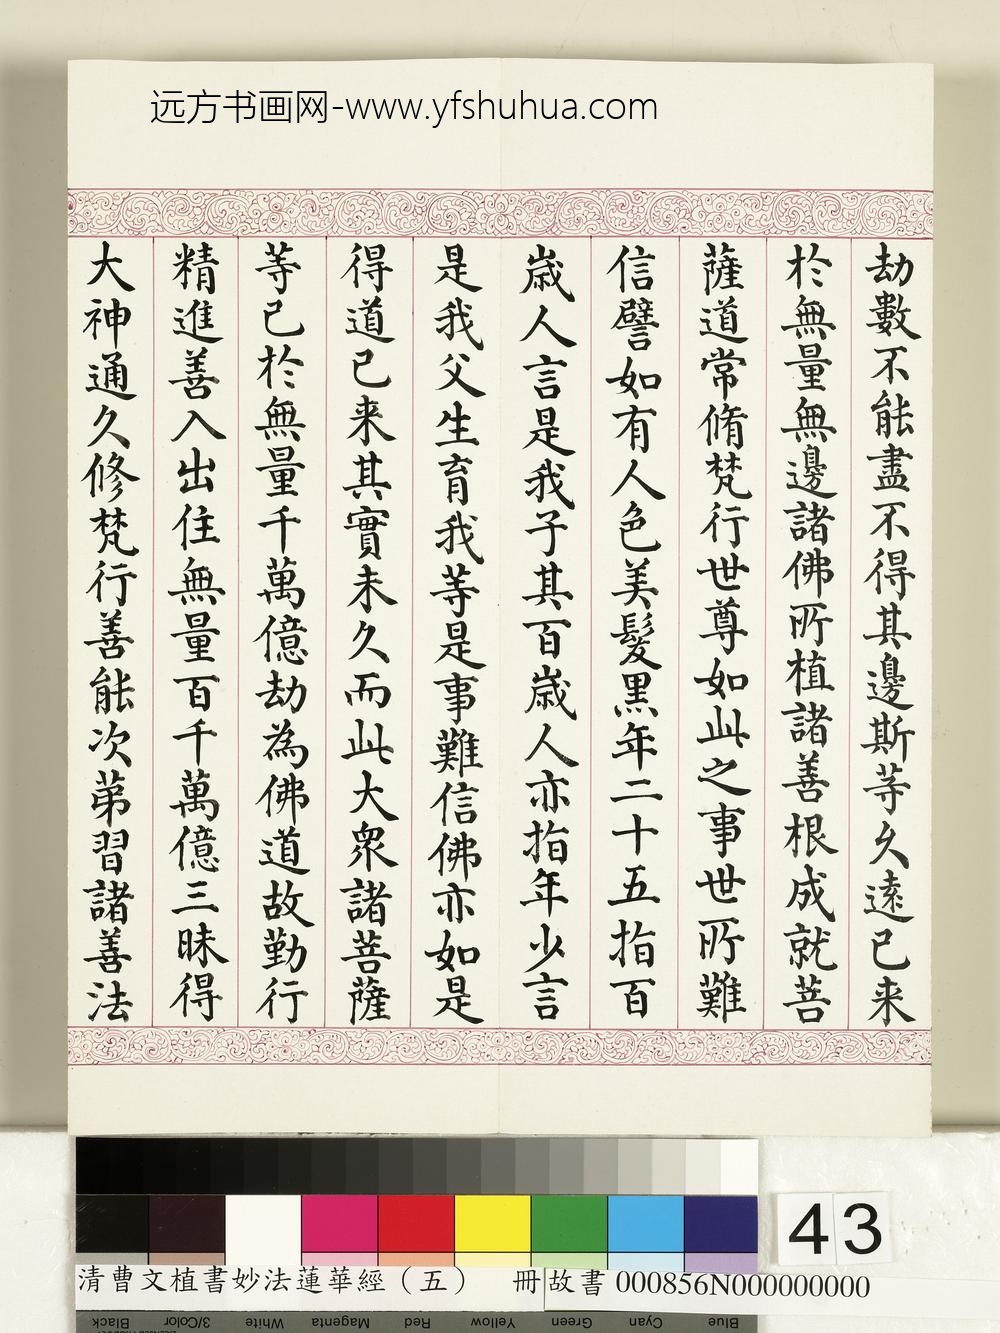 远方书画网-www.yfshuhua.com
劫數不能盡不得其邊斯等久遠已来
於無量無邊諸佛所植諸善根成就菩
薩道常脩梵行世尊如此之事世所難
信譬如有人色美髮黑年二十五指百
歲人言是我子其百歲人亦指年少言
是我父生育我等是事難信佛亦如是
得道已来其實未久而此大衆諸菩薩
等已於無量千萬億劫為佛道故勤行
精進善入出住無量百千萬億三昧得
大神通久修梵行善能次第習諸善法
43
清曹文植書妙法蓮華經（五） 冊故書 000856N000000000
Black 3/Color White Magenta Red Yellow Green Cyan Blue